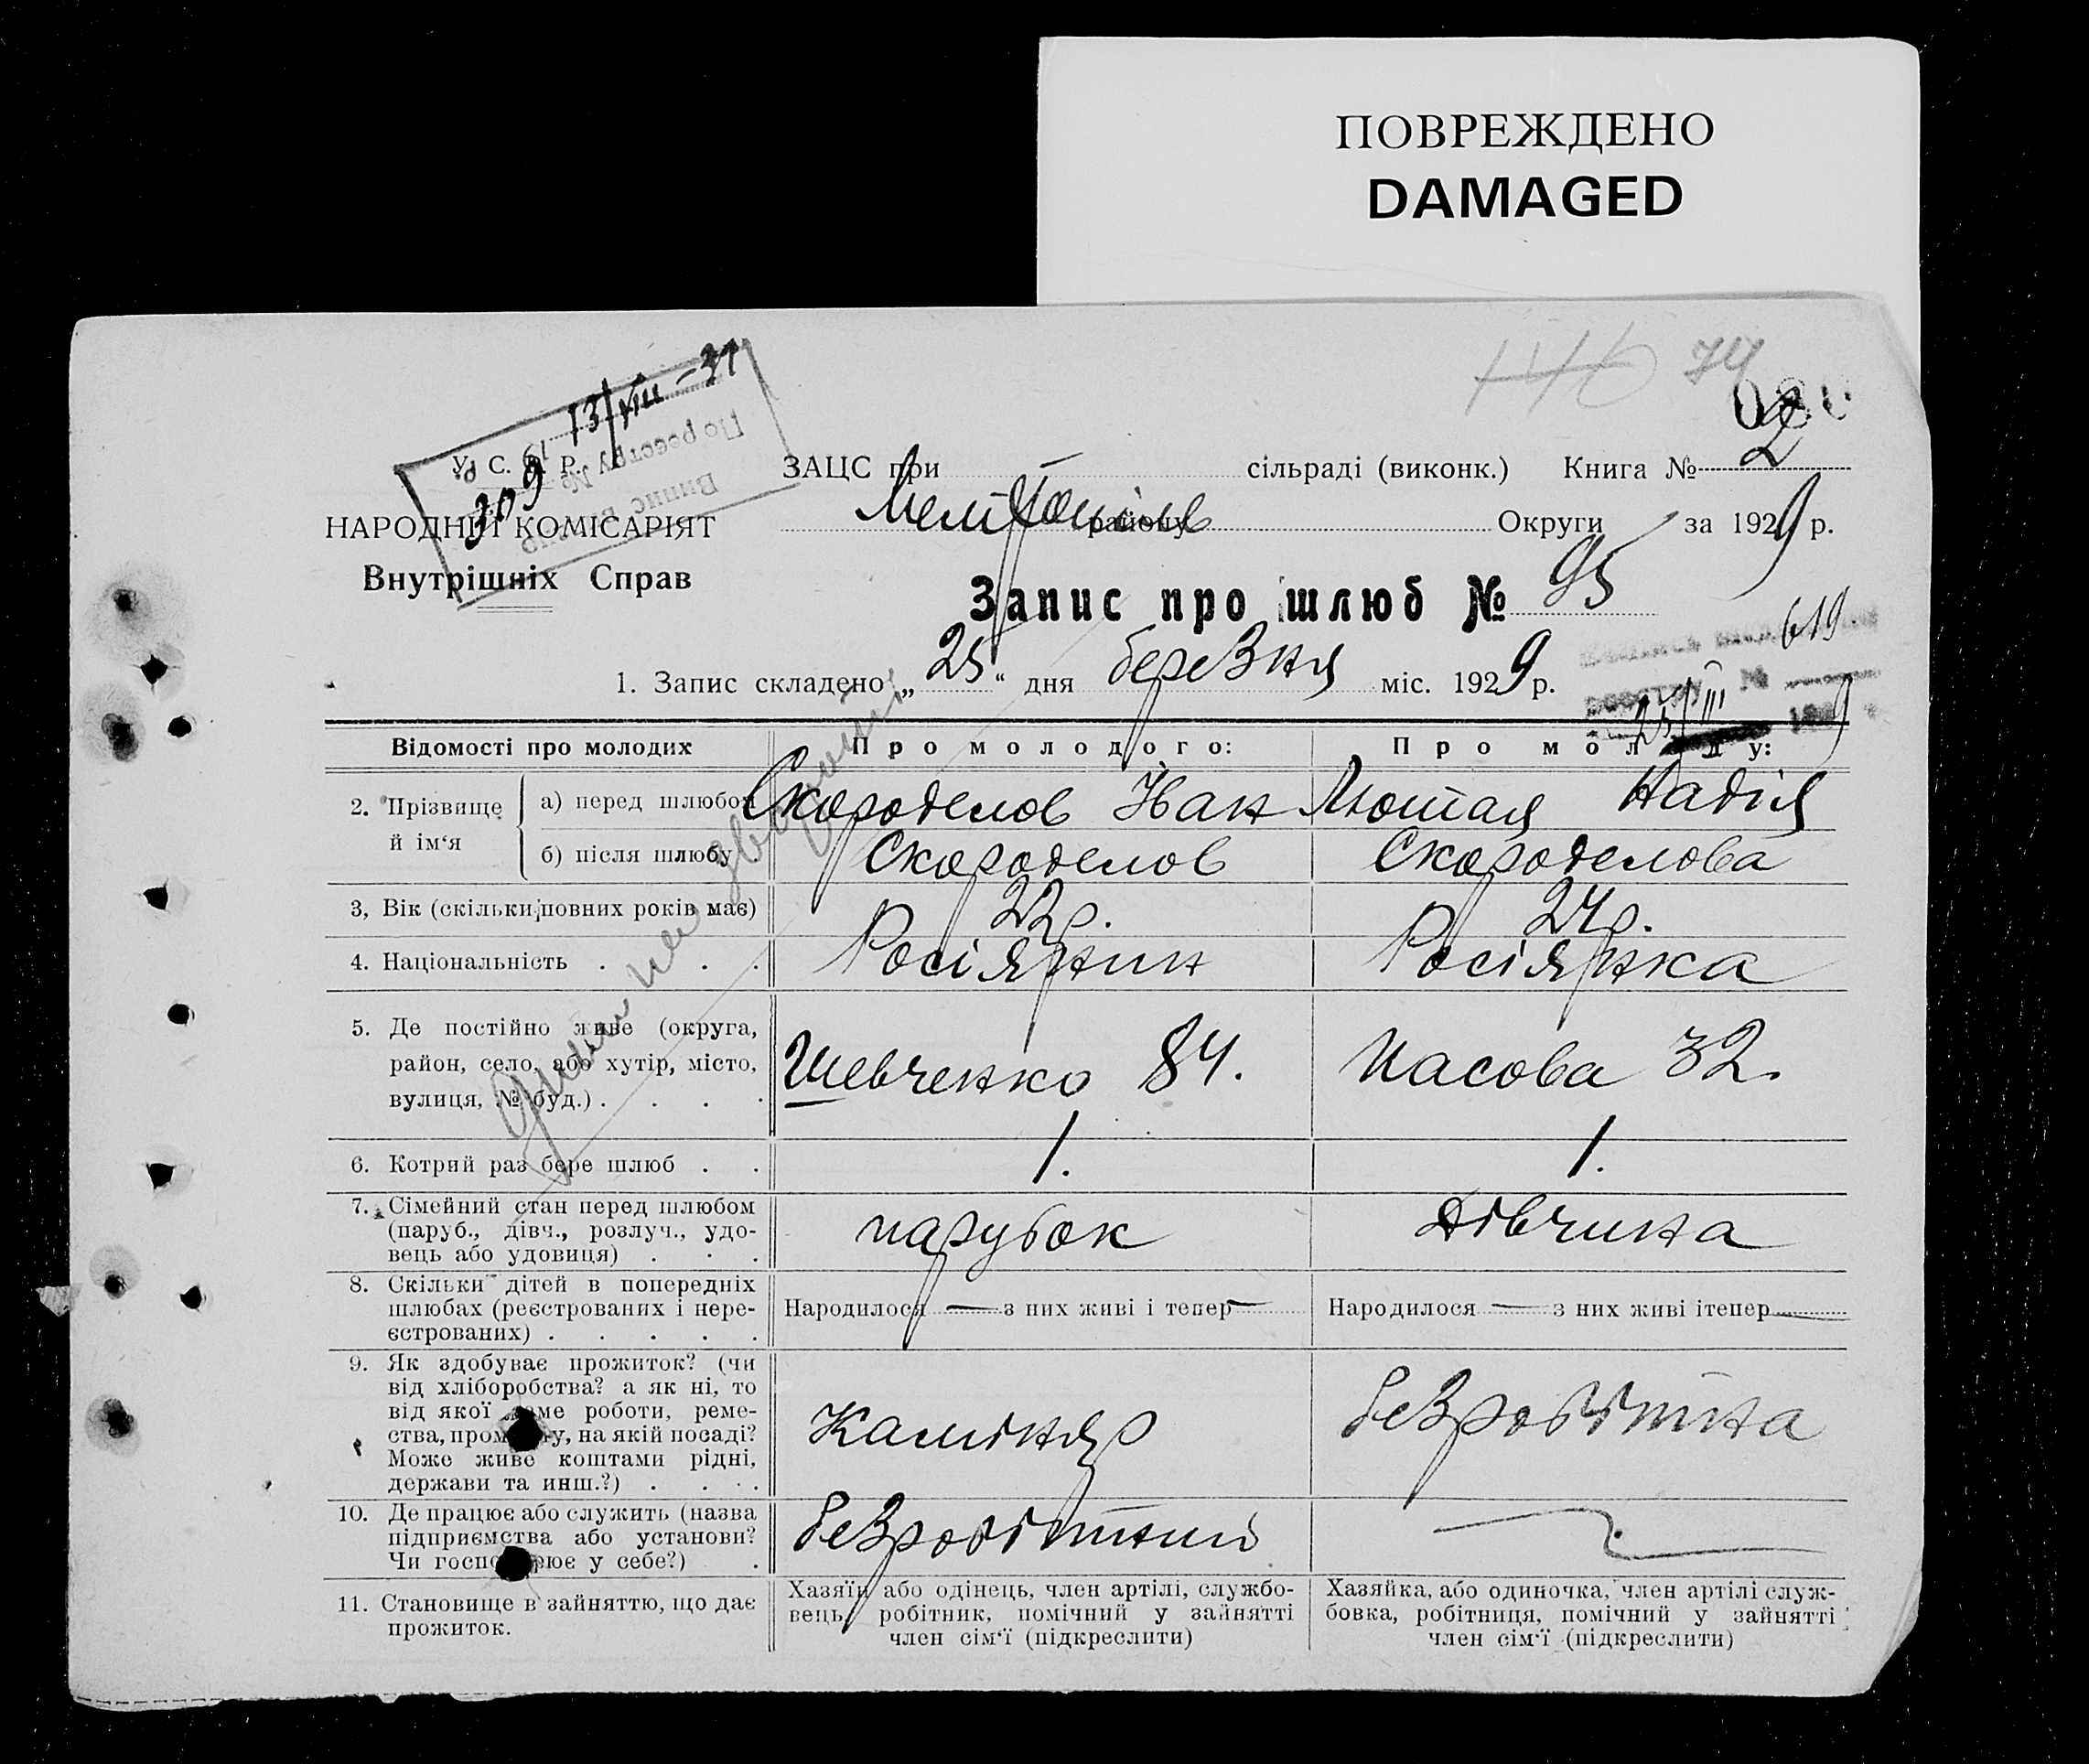 ПОВРЕЖДЕНО
DAMAGED
146 74
13/VIII-31
По реєстру №
Випис
309
У. С. Р. Р.
НАРОДНІЙ КОМІСАРІЯТ
Внутрішніх Справ
ЗАЦС при — сільраді (виконк.) Книга № 2
Мелітопіль району Округи за 1929 р.
Запис про шлюб № 95
619
1. Запис складено „25“ дня березня міс. 1929 р.
25/III 9
Відомості про молодих Про молодого: Про молоду:
2. Прізвище й ім‘я а) перед шлюбом Скороделов Іван Лютая Надія
б) після шлюбу Скороделов Скороделова
3, Вік (скільки повних років має) 22 р. 24 р.
4. Національність . . . . Росіянин Росіянка
5. Де постійно живе (округа,
район, село, або хутір, місто,
вулиця, № буд.) . . . . Шевченко 84. Часова 32.
6. Котрий раз бере шлюб . . 1. 1.
7. Сімейний стан перед шлюбом
(паруб., дівч., розлуч., удо-
вець або удовиця) . . . парубок дівчина
8. Скільки дітей в попередніх
шлюбах (реєстрованих і нере-
єстрованих) . . . . .
Народилося — з них живі і тепер — Народилося — з них живі ітепер —
9. Як здобуває прожиток? (чи
від хліборобства? а як ні, то
від якої саме роботи, реме-
ства, промислу, на якій посаді?
Може живе коштами рідні,
держави та инш.?) . . . .
Каміняр безробітна
10. Де працює або служить (назва
підприємства або установи?
Чи господарює у себе?) .
безробітний —
11. Становище в зайняттю, що дає
прожиток.
Хазяїн або одінець, член артілі, службо-
вець, робітник, помічний у зайнятті
член сім‘ї (підкреслити)
Хазяйка, або одиночка, член артілі служ-
бовка, робітниця, помічний у зайнятті
член сім‘ї (підкреслити)